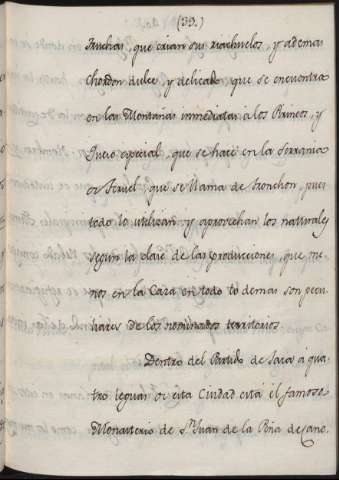 (33.)
truchas, que crian sus riachuelos, y ademas
Chordon dulce, y delicado que se encuentra
en las Montañas inmediatas à los Pirineos, y
Queso especial, que se hace en la Serrania
de Teruel, que se llama de Tronchon, pues
todo lo utilizan y aprovechan los naturales
segun la clase de las producciones, que me-
nos en la Caza en todo lo demas son pecu-
liares de los nominados territorios.
Dentro del Partido de Jaca à qua-
tro leguas de esta Ciudad està el famoso
Monasterio de Sn. Juan de la Peña de Cano-